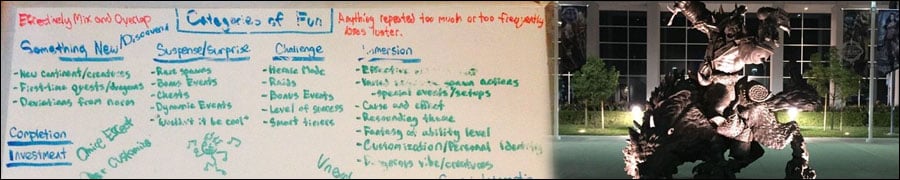 Effectively Mix and Overlap
Categories of Fun
Anything repeated too much or too frequently
loses luster.
Something New/Discovery
- New continent/creatures
- First-time quests/dragons
- Deviations from norms
Suspense/Surprise
- Rare spawns
- Bonus Events
- Chests
- Dynamic Events
- "Wouldn't it be cool"
Challenge
- Heroic Mode
- Raids
- Bonus Events
- Level of success
- Smart timers
Immersion
- Effective
- spawn actions
- special events/setups
- Cause and effect
- Responding theme
- Fantasy of ability level
- Customization/Personal identity
- Dangerous vibe/creatures
Completion
Investment
Customize